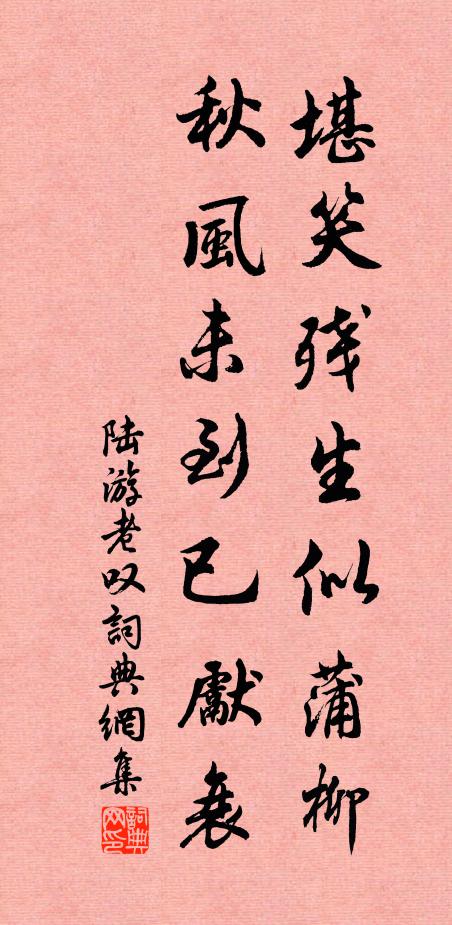 堪笑残生似蒲柳
秋風未到已獻衰
陆游老叹詞典網集
詞典
网印